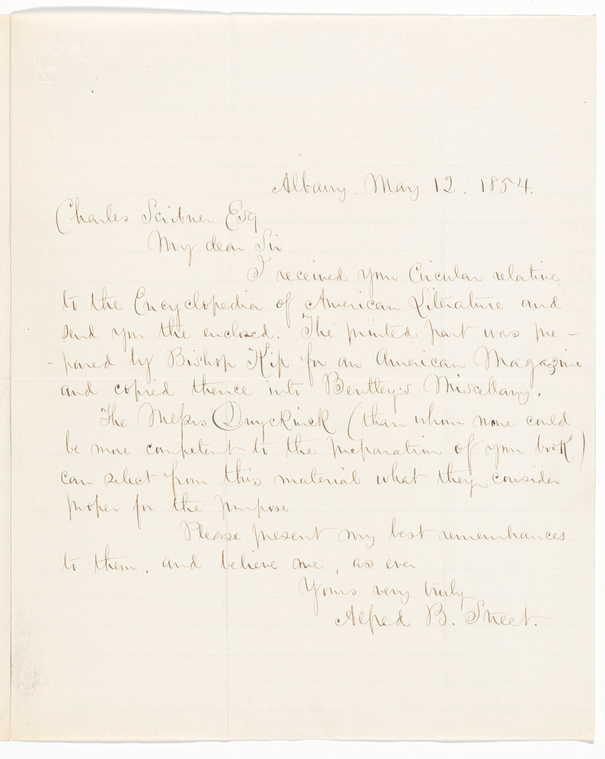 Albany. May 12. 1854.
Charles Scribner Esq
My dear Sir
I received your Circular relative
to the Encyclopedia of American Literature and
send you the enclosed. The printed part was pre-
-pared by Bishop Kip for an American Magazine
and copied thence into Bentley's Miscellany.
The Messrs Duyckinck (than whom none could
be more competent to the preparation of your book)
can select from this material what they consider
proper for the purpose
Please present my best remembrances
to them, and believe me, as ever
Yours very truly
Alfred B. Street.